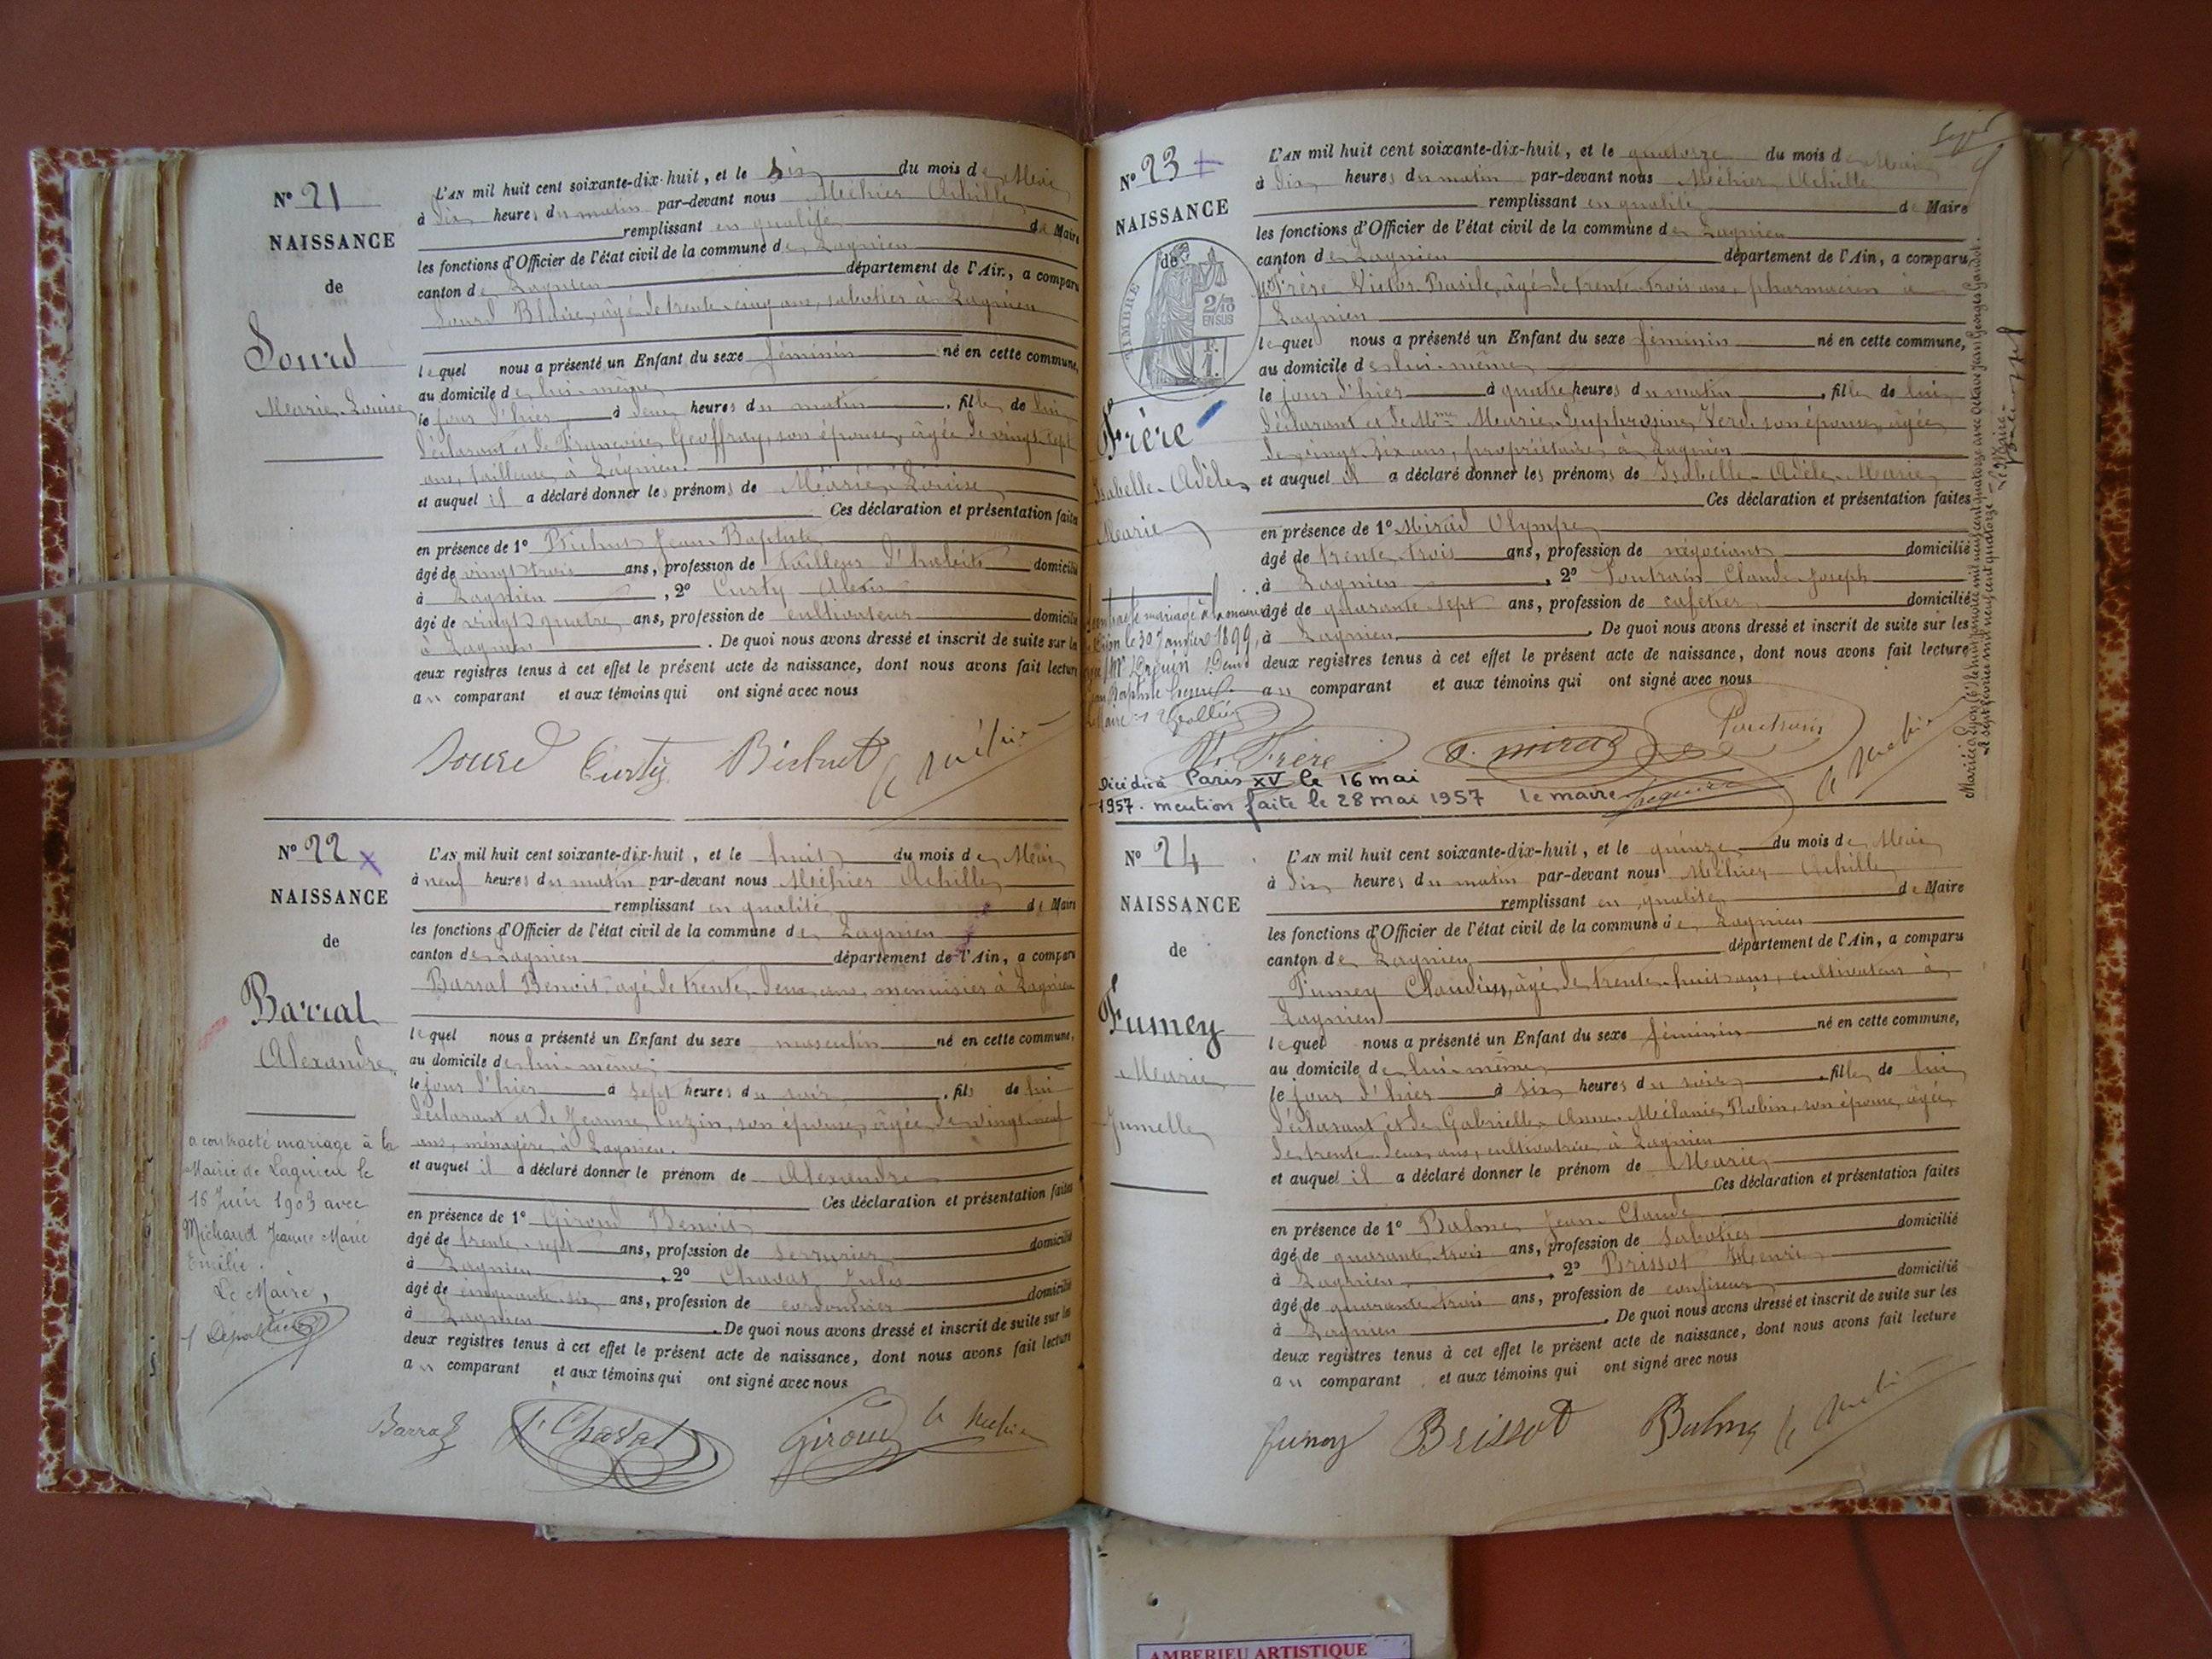 Nº 21
NAISSANCE
de
Sourd
Marie-Louise
L'AN mil huit cent soixante-dix-huit, et le six du mois de Mai
à dix heures du matin par-devant nous Méhier Achille
remplissant en qualité de Maire
les fonctions d'Officier de l'état civil de la commune de Lagnieu
canton de Lagnieu département de l'Ain, a comparu
Sourd Blaise, âgé de trente-cinq ans, sabotier à Lagnieu
lequel nous a présenté un Enfant du sexe féminin né en cette commune,
au domicile de lui-même
le jour d'hier à deux heures du matin, fille de lui
déclarant et de Françoise Geoffray, son épouse, âgée de vingt-sept
ans, tailleuse, à Lagnieu.
et auquel il a déclaré donner les prénoms de Marie-Louise
Ces déclaration et présentation faites
en présence de 1º Bichut Jean-Baptiste
âgé de vingt-trois ans, profession de tailleur d'habits domicilié
à Lagnieu, 2º Curty Alexis
âgé de vingt-quatre ans, profession de cultivateur domicilié
à Lagnieu. De quoi nous avons dressé et inscrit de suite sur les
deux registres tenus à cet effet le présent acte de naissance, dont nous avons fait lecture
au comparant et aux témoins qui ont signé avec nous
Sourd Curty Bichut A. Méhier
Nº 22 x
NAISSANCE
de
Barral
Alexandre
a contracté mariage à la
Mairie de Lagnieu le
18 Juin 1903 avec
Michaud Jeanne Marie
Emilie.
Le Maire,
L'AN mil huit cent soixante-dix-huit, et le huit du mois de Mai
à neuf heures du matin par-devant nous Méhier Achille
remplissant en qualité de Maire
les fonctions d'Officier de l'état civil de la commune de Lagnieu
canton de Lagnieu département de l'Ain, a comparu
Barral Benoit, âgé de trente-deux ans, menuisier à Lagnieu
lequel nous a présenté un Enfant du sexe masculin né en cette commune,
au domicile de lui-même
le jour d'hier à sept heures du soir, fils de lui
déclarant et de Jeanne Luzin, son épouse, âgée de vingt-neuf
ans, ménagère, à Lagnieu.
et auquel il a déclaré donner le prénom de Alexandre
Ces déclaration et présentation faites
en présence de 1º Giroud Benoit
âgé de trente-sept ans, profession de serrurier domicilié
à Lagnieu, 2º Chavat Jules
âgé de cinquante-six ans, profession de cordonnier domicilié
à Lagnieu. De quoi nous avons dressé et inscrit de suite sur les
deux registres tenus à cet effet le présent acte de naissance, dont nous avons fait lecture
au comparant et aux témoins qui ont signé avec nous
Barral J. Chavat Giroud A. Méhier
Nº 23 +
NAISSANCE
de
TIMBRE
2/10
EN SUS
Frère
Isabelle-Adèle
Marie
mariage à la mairie
de Lyon le 30 Janvier 1899,
Jean Baptiste
L'AN mil huit cent soixante-dix-huit, et le quatorze du mois de Mai
à dix heures du matin par-devant nous Méhier Achille
remplissant en qualité de Maire
les fonctions d'Officier de l'état civil de la commune de Lagnieu
canton de Lagnieu département de l'Ain, a comparu
Mr Frère Victor Basile, âgé de trente-trois ans, pharmacien à
Lagnieu
lequel nous a présenté un Enfant du sexe féminin né en cette commune,
au domicile de lui-même
le jour d'hier à quatre heures du matin, fille de lui
déclarant et de Mme Marie-Euphrosine Verd, son épouse, âgée
de vingt-six ans, propriétaire à Lagnieu
et auquel il a déclaré donner les prénoms de Isabelle-Adèle-Marie
Ces déclaration et présentation faites
en présence de 1º Mirad Olympe
âgé de trente-trois ans, profession de négociant domicilié
à Lagnieu, 2º Poutrain Claude-Joseph
âgé de quarante-sept ans, profession de cafetier domicilié
à Lagnieu. De quoi nous avons dressé et inscrit de suite sur les
deux registres tenus à cet effet le présent acte de naissance, dont nous avons fait lecture
au comparant et aux témoins qui ont signé avec nous
Vr Frère O. Mirad Poutrain A. Méhier
Décédée à Paris XV le 16 mai
1957. mention faite le 28 mai 1957 le maire
Mariée à Lyon (6e) le huit janvier mil neuf cent quatorze avec Octave Jean Georges Gandot.
Le sept février mil neuf cent quatorze.- Le Maire.-
Nº 24
NAISSANCE
de
Fumey
Marie
Jumelle
L'AN mil huit cent soixante-dix-huit, et le quinze du mois de Mai
à dix heures du matin par-devant nous Méhier Achille
remplissant en qualité de Maire
les fonctions d'Officier de l'état civil de la commune de Lagnieu
canton de Lagnieu département de l'Ain, a comparu
Fumey Claudius, âgé de trente-huit ans, cultivateur à
Lagnieu
lequel nous a présenté un Enfant du sexe féminin né en cette commune,
au domicile de lui-même
le jour d'hier à six heures du soir, fille de lui
déclarant et de Gabrielle-Anne-Mélanie Robin, son épouse, âgée
de trente-deux ans, cultivatrice à Lagnieu
et auquel il a déclaré donner le prénom de Marie
Ces déclaration et présentation faites
en présence de 1º Balme Jean-Claude
âgé de quarante-trois ans, profession de sabotier domicilié
à Lagnieu, 2º Brissot Henri
âgé de quarante-trois ans, profession de confiseur domicilié
à Lagnieu. De quoi nous avons dressé et inscrit de suite sur les
deux registres tenus à cet effet le présent acte de naissance, dont nous avons fait lecture
au comparant et aux témoins qui ont signé avec nous
Fumey Brissot Balme A. Méhier
AMBERIEU ARTISTIQUE